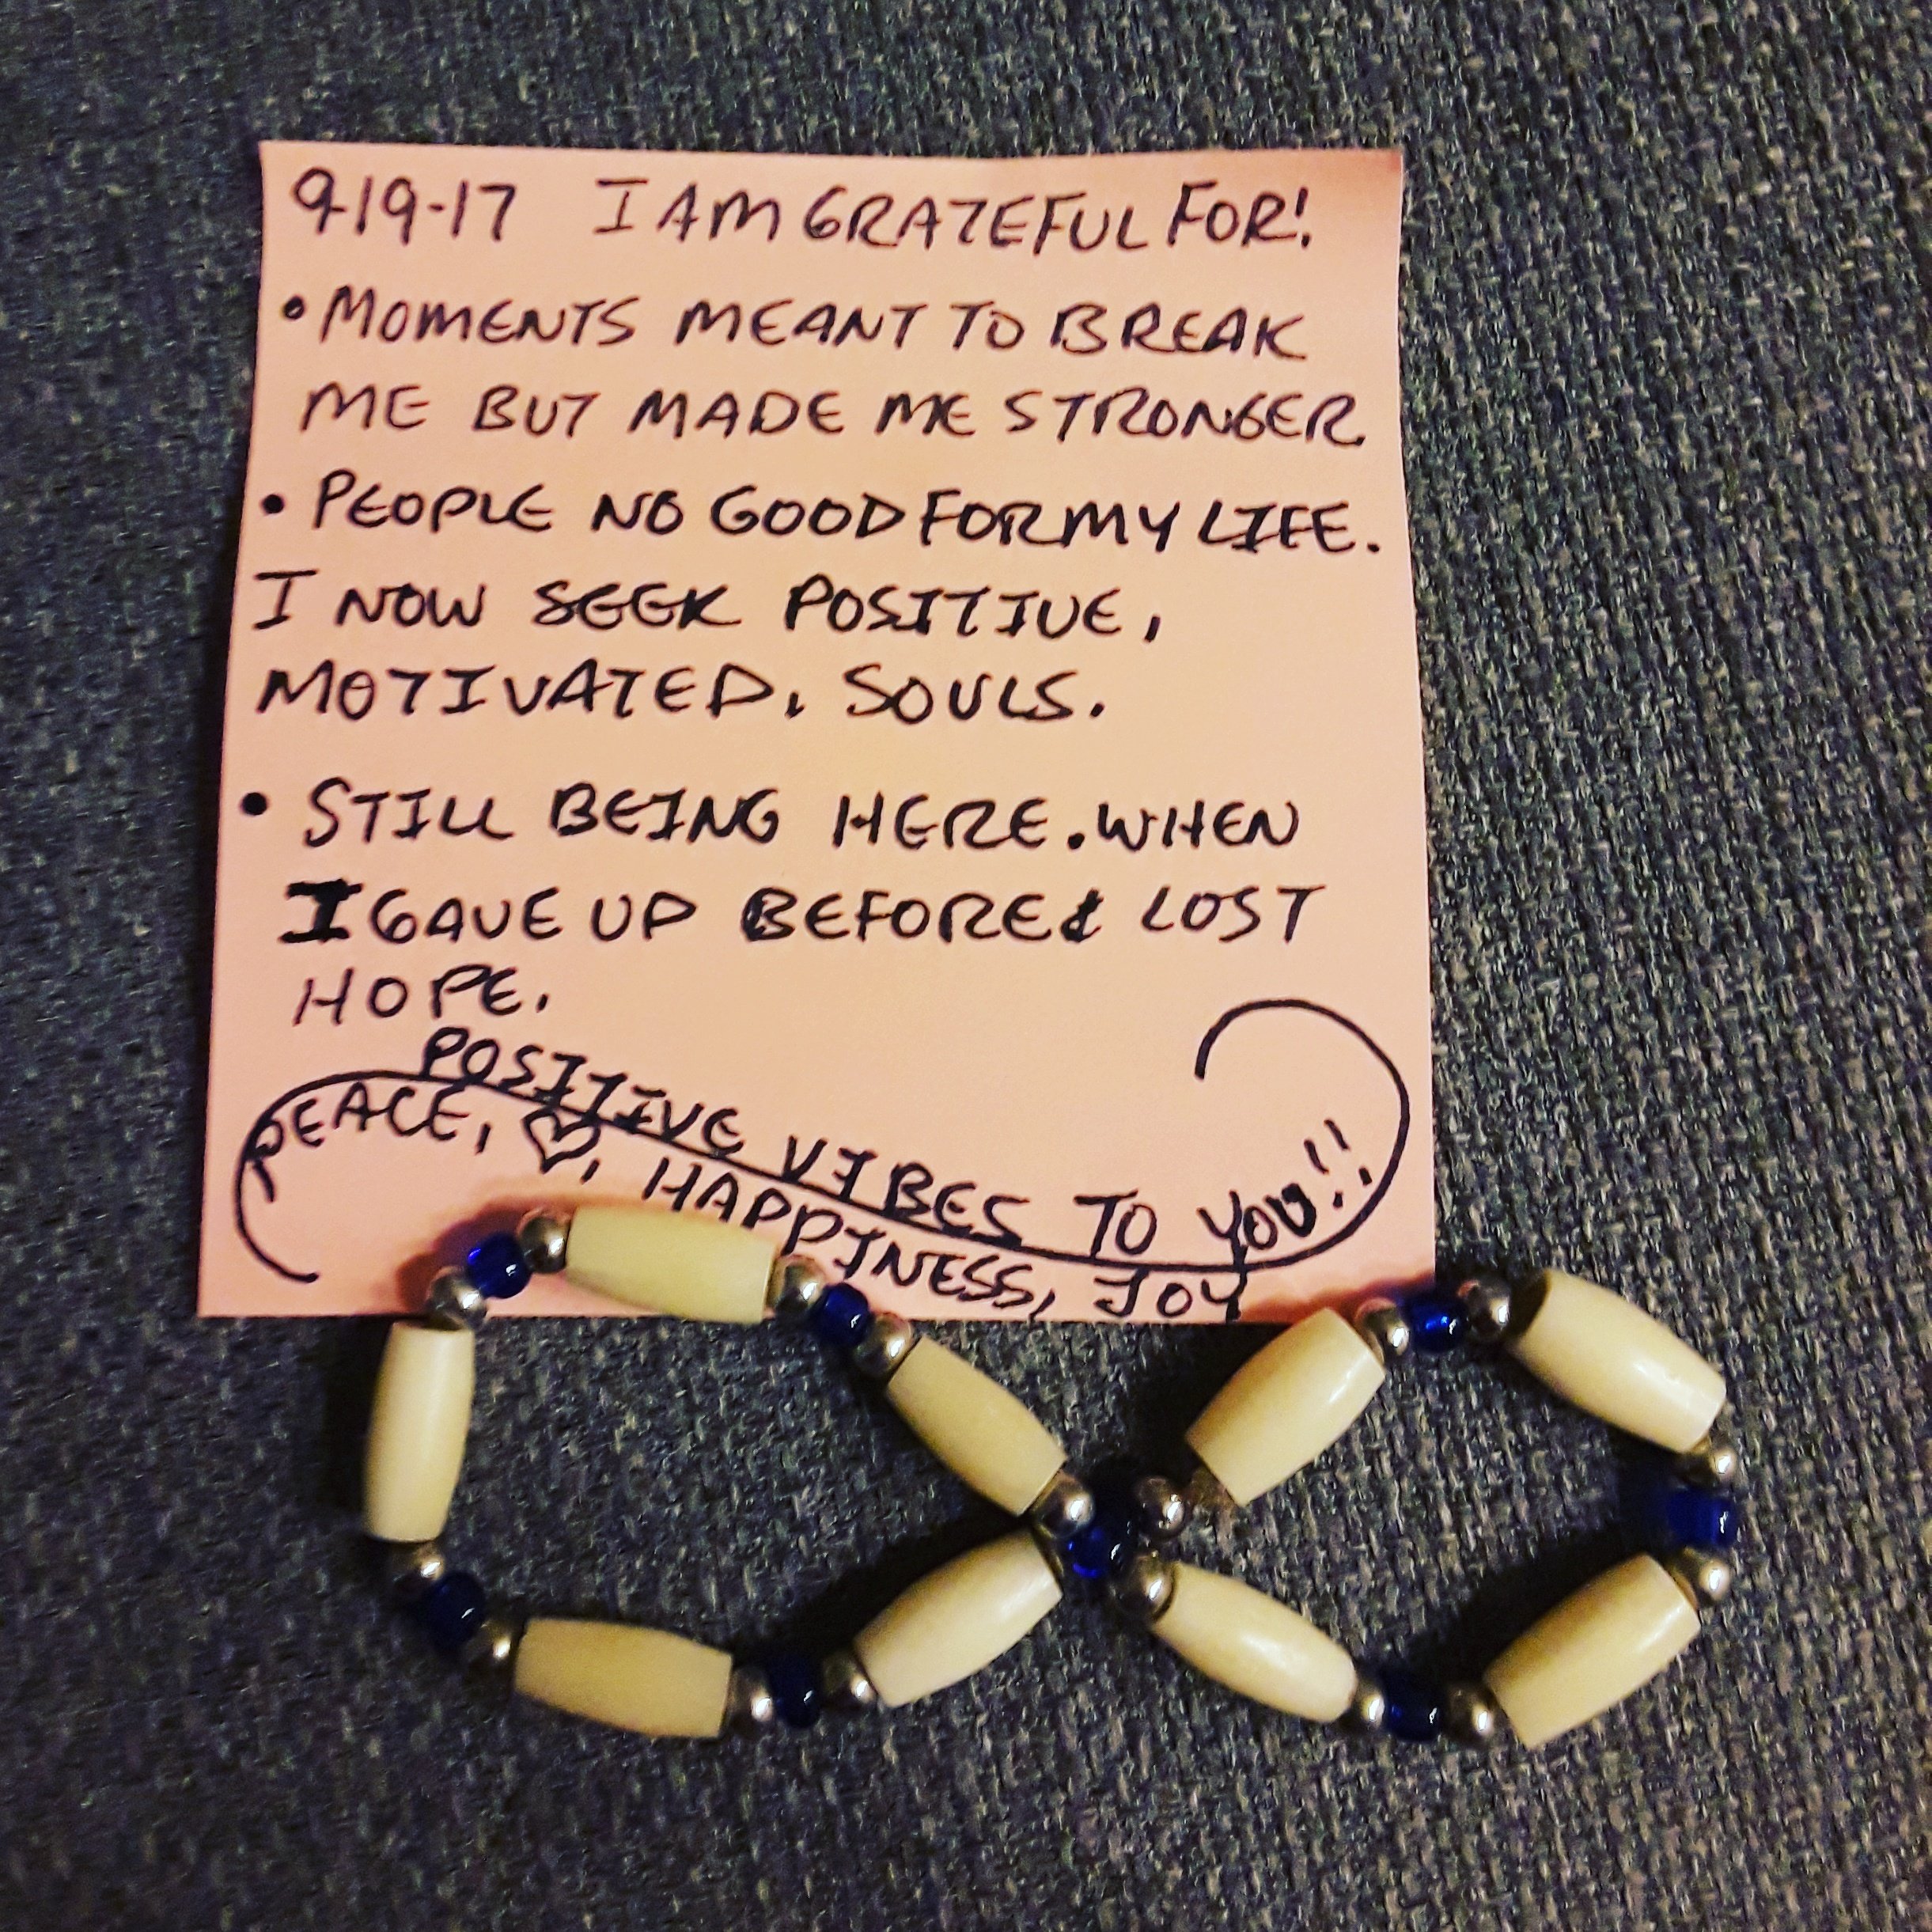 9-19-17 I AM GRATEFUL FOR!
• MOMENTS MEANT TO BREAK
ME BUT MADE ME STRONGER.
• PEOPLE NO GOOD FOR MY LIFE.
I NOW SEEK POSITIVE,
MOTIVATED, SOULS.
• STILL BEING HERE. WHEN
I GAVE UP BEFORE & LOST
HOPE.
POSITIVE VIBES TO YOU!!
PEACE, ♡, HAPPINESS, JOY